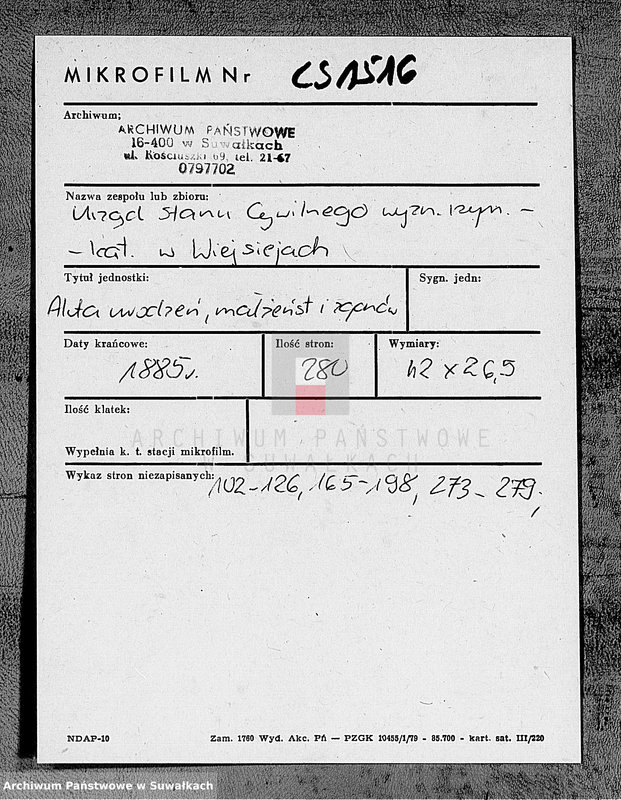 MIKROFILM Nr CS1516
Archiwum;
ARCHIWUM PAŃSTWOWE
16-400 w Suwałkach
ul. Kościuszki 69, tel. 21-67
0797702
Nazwa zespołu lub zbioru:
Urząd Stanu Cywilnego wyzn. rzym. -
- kat. w Wiejsiejach
Tytuł jednostki:
Sygn. jedn:
Akta urodzeń, małżeńst i zgonów
Daty krańcowe:
Ilość stron:
Wymiary:
1885r.
280
42 x 26,5
Ilość klatek:
ARCHIWUM PAŃSTWOWE
W SUWAŁKACH
Wypełnia k. t. stacji mikrofilm.
Wykaz stron niezapisanych:
102-126, 165-198, 273-279,
NDAP-10
Zam. 1760 Wyd. Akc. Pń — PZGK 10455/1/79 - 85.700 - kart. sat. III/220
Archiwum Państwowe w Suwałkach